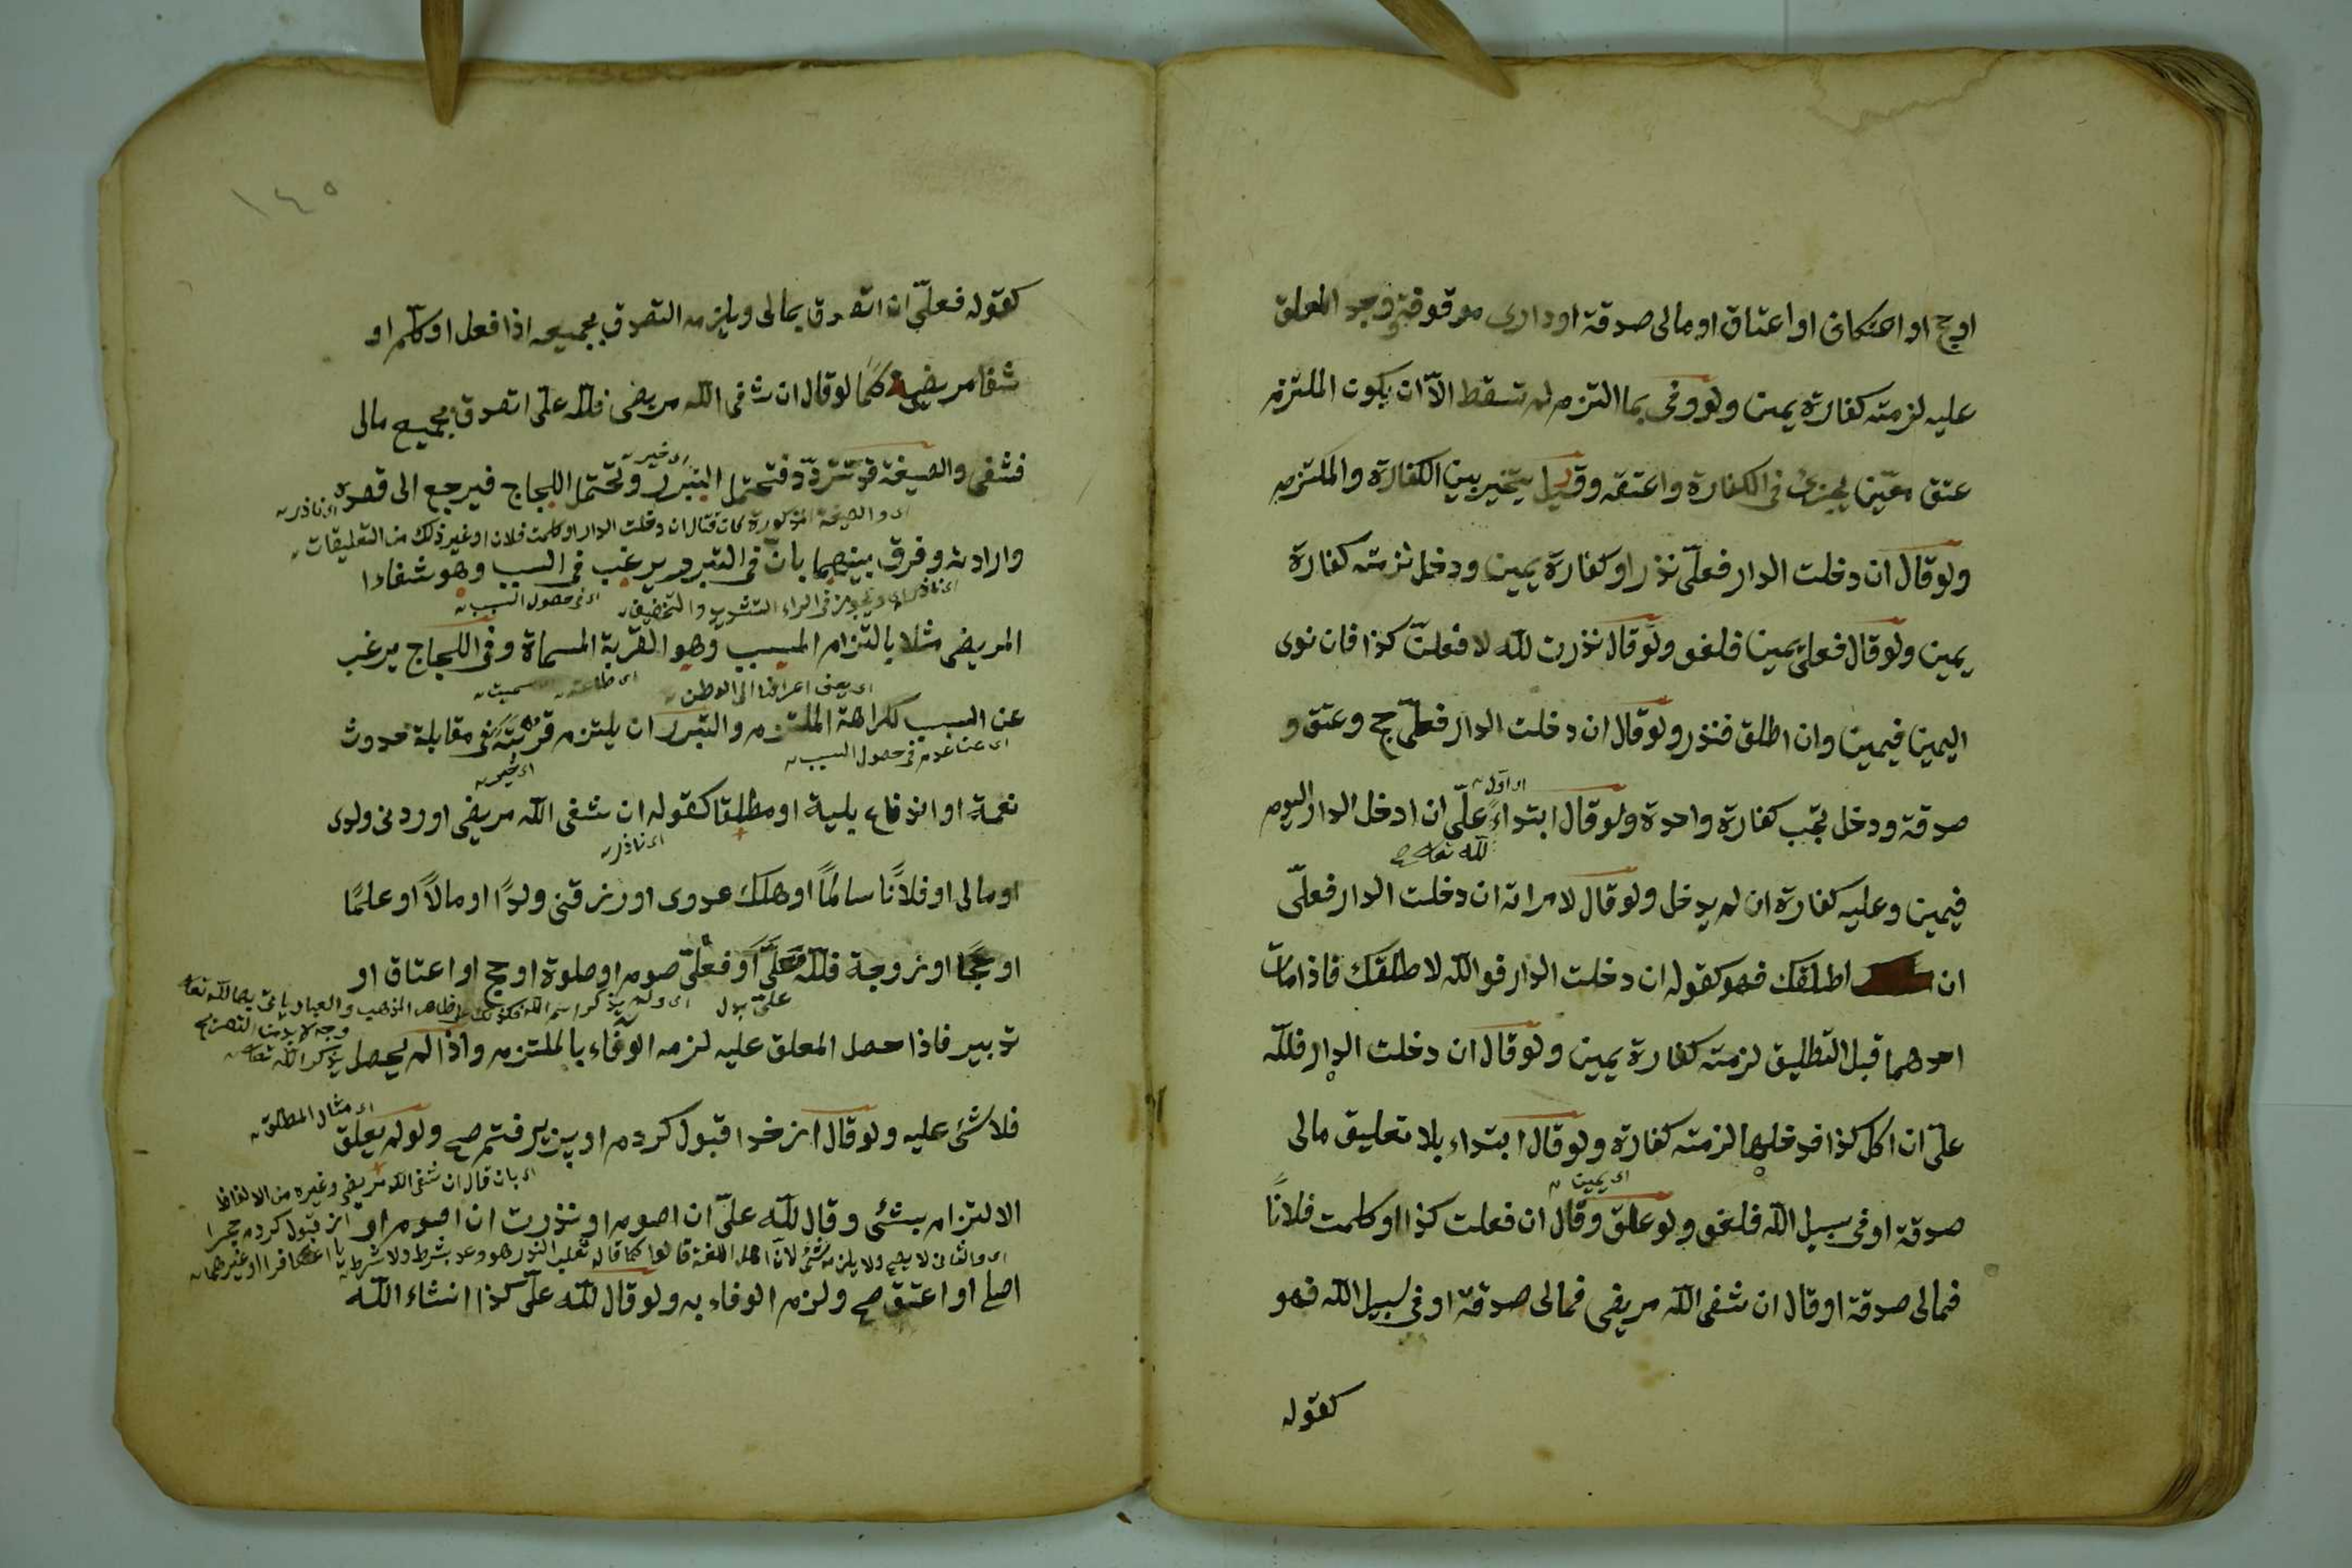 اوحج او اعتكاف او اعتاق او مالى صدقة او دارى موقوفة وجد المعلق
عليه لزمته كفارة يمين ولو وفى بما التزم لم تسقط الاّ ان يكون الملتزم
عتق معيّن يجزئ فى الكفارة واعتقه وقيل يتخير بين الكفارة والملتزم
ولو قال ان دخلت الدار فعلىّ نذر او كفارة يمين ودخل لزمته كفارة
يمين ولو قال فعلىّ يمين فلغو ولو قال نذرت لله لا فعلنّ كذا فان نوى
اليمين فيمين وان اطلق فنذر ولو قال ان دخلت الدار فعلىّ حج وعتق و
اى اول
صدقة ودخل تجب كفارة واحدة ولو قال ابتداءً علىّ ان ادخل الدار اليوم
لله تعالى
فيمين وعليه كفارة ان لم يدخل ولو قال لامراته ان دخلت الدار فعلىّ
ان اطلقك فهو كقوله ان دخلت الدار فوالله لا طلقك فاذا مات
احدهما قبل التطليق لزمته كفارة يمين ولو قال ان دخلت الدار فلله
علىّ ان اكل كذا فدخلها لزمته كفارة ولو قال ابتداء بلا تعليق مالى
اى يمين
صدقة او فى سبيل الله فلغو ولو علق وقال ان فعلت كذا او كلمت فلانًا
فمالى صدقة او قال ان شفى الله مريضى فمالى صدقة او فى سبيل الله فهو
كقوله
١٤٥
كقوله فعلىّ ان اتصدق بمالى ويلزمه التصدق بجميعه اذا فعل او كلم او
شفا مريضه كما لو قال ان شفى الله مريضى فلله علىّ اتصدق بجميع مالى
اى خير
فشفى والصيغة قد تتردّد فتحتمل التبرر وتحتمل اللجاج فيرجع الى قصده اى ناذر
اى والصيغة المذكورة كان قال ان دخلت الدار او كلمت فلانا او غير ذلك من التعليقات
وارادته وفرق بينهما بانّ فى التبرر يرغب فى السبب وهو شفاء ا
اى ناذر ويجوز فى الراء التشديد والتخفيف اى فى حصول السبب
المريض مثلا بالتزام المسبب وهو القربة المسماة وفى اللجاج يرغب
اى طاعته سميت
عن السبب لكراهة الملتزم والتبرر ان يلتزم قربة فى مقابلة حدوث
اى عن عدم فى حصول السبب
اى خير
نعمة او اندفاع بلية او مطلقا كقوله ان شفى الله مريضى او رد نى ولدى
اى ناذر
او مالى او فلانًا سالمًا او هلك عدوى او رزقنى ولدًا او مالاً او علمًا
او حجًا او زوجة فلله علىّ او فعلىّ صوم او صلوة او حج او اعتاق او
تدبير فاذا حصل المعلق عليه لزمه الوفاء بالملتزم واذا لم يحصل
اى مثال المطلق
فلا شئ عليه ولو قال از خدا قبول كردم او پزيرفتم صح ولو لم يعلق
اى بان قال ان شفى الله مريضى وغيره من الالفاظ
الالتزام بشئى وقال لله علىّ ان اصوم او نذرت ان اصوم او
اصلى او اعتق صح ولزم الوفاء به ولو قال لله علىّ كذا انشاء الله